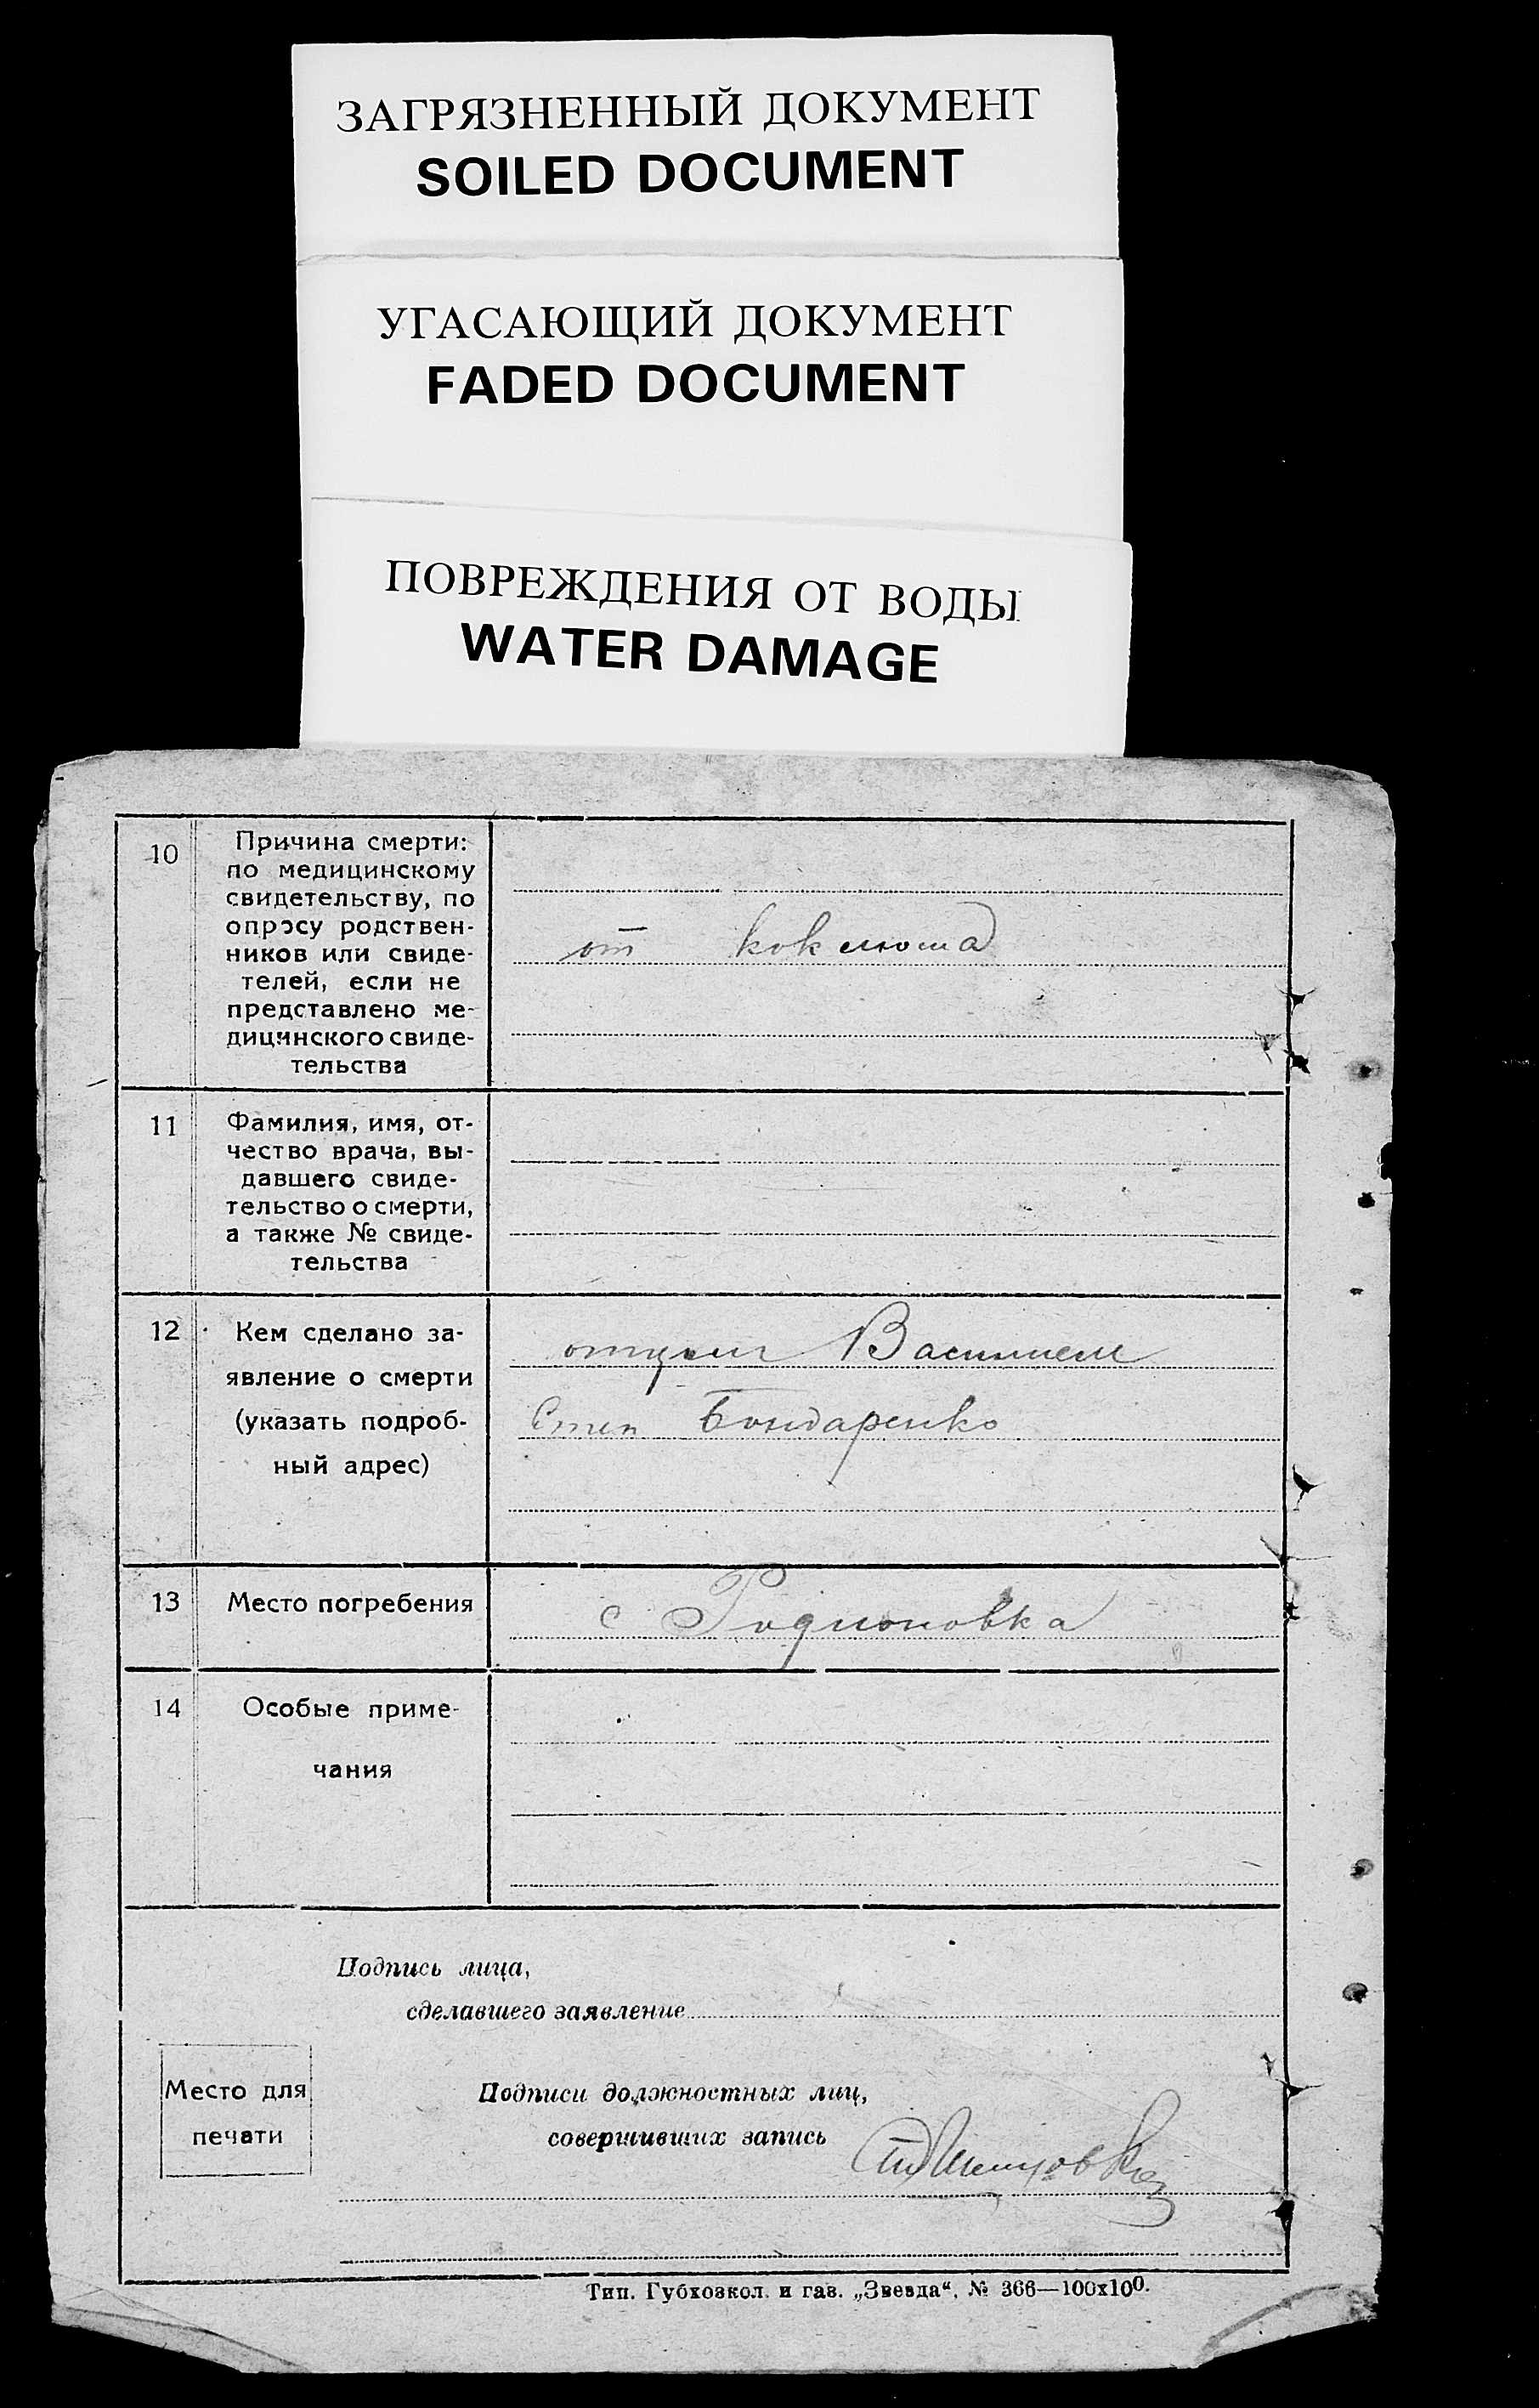 ЗАГРЯЗНЕННЫЙ ДОКУМЕНТ
SOILED DOCUMENT
УГАСАЮЩИЙ ДОКУМЕНТ
FADED DOCUMENT
ПОВРЕЖДЕНИЯ ОТ ВОДЫ
WATER DAMAGE
10
Причина смерти:
по медицинскому
свидетельству, по
опросу родствен-
ников или свиде-
телей, если не
представлено ме-
дицинского свиде-
тельства
от коклюша
11
Фамилия, имя, от-
чество врача, вы-
давшего свиде-
тельство о смерти,
а также № свиде-
тельства
12
Кем сделано за-
явление о смерти
(указать подроб-
ный адрес)
отцем Василием
Степ Бондаренко
13
Место погребения
с Родионовка
14
Особые приме-
чания
Подпись лица,
сделавшего заявление
Место для
печати
Подписи должностных лиц,
совершивших запись
Тип. Губхозкол. и газ. „Звезда“, № 366—100х100.